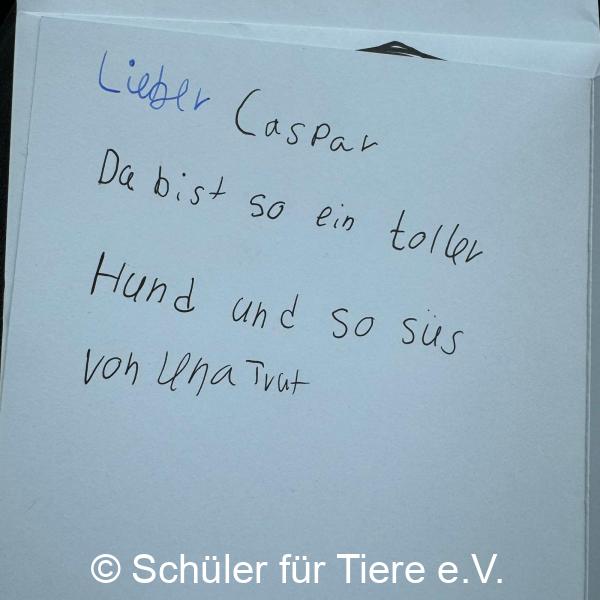 Lieber Caspar
Da bist so ein toller
Hund und so süs
von Una Trat
© Schüler für Tiere e.V.